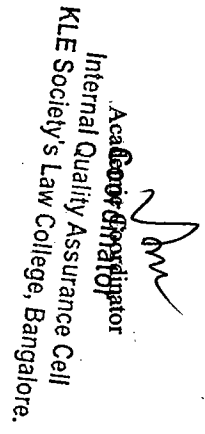 Academic Coordinator
Coordinator
Internal Quality Assurance Cell
KLE Society's Law College, Bangalore.